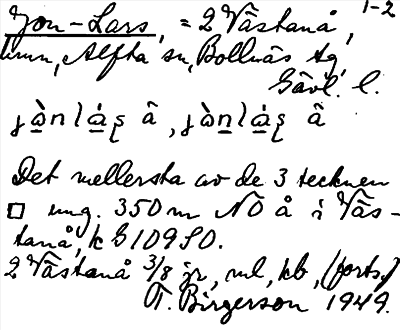 1-2
Jon-Lars, = 2 Västanå,
hmn, Alfta sn, Bollnäs tg,
Gävl. l.
Det mellersta av de 3 tecknen
□ ung. 350 m NO å i Väs-
tanå, k G 109 SO.
2 Västanå 3/8 jr, ml, kb, (forts.)
T. Birgerson 1949.